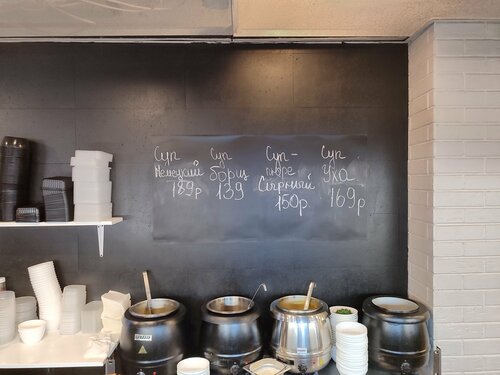 Суп
Немецкий
189р
Суп
борщ
139
Суп-
пюре
Сырный
150р
Суп
Уха
169р